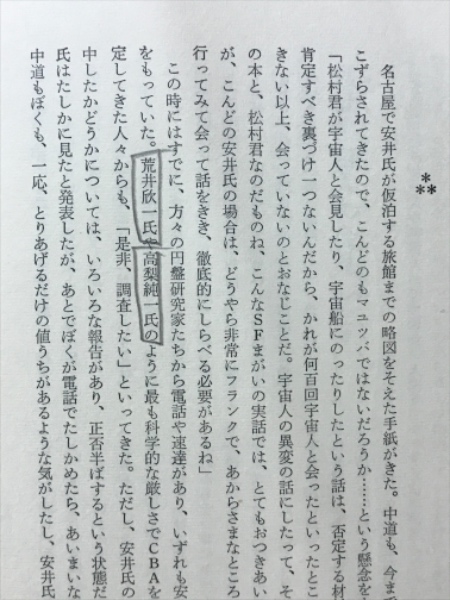 ***
名古屋で安井氏が仮泊する旅館までの略図をそえた手紙がきた。中道も、今まで
こずらされてきたので、こんどのもマユツバではないだろうか……という懸念を
「松村君が宇宙人と会見したり、宇宙船にのったりしたという話は、否定する材
肯定すべき裏づけ一つないんだから、かれが何百回宇宙人と会ったといったとこ
きない以上、会っていないのとおなじことだ。宇宙人の異変の話にしたって、そ
の本と、松村君なのだものね、こんなSFまがいの実話では、とてもおつきあい
が、こんどの安井氏の場合は、どうやら非常にフランクで、あからさまなところ
行ってみて会って話をきき、徹底的にしらべる必要があるね」
この時にはすでに、方々の円盤研究家たちから電話や速達があり、いずれも安
をもっていた。荒井欣一氏や高梨純一氏のように最も科学的な厳しさでCBAを
定してきた人々からも、「是非、調査したい」といってきた。ただし、安井氏の
中したかどうかについては、いろいろな報告があり、正否半ばするという状態だ
氏はたしかに見たと発表したが、あとでぼくが電話でたしかめたら、あいまいな
中道もぼくも、一応、とりあげるだけの値うちがあるような気がしたし、安井氏